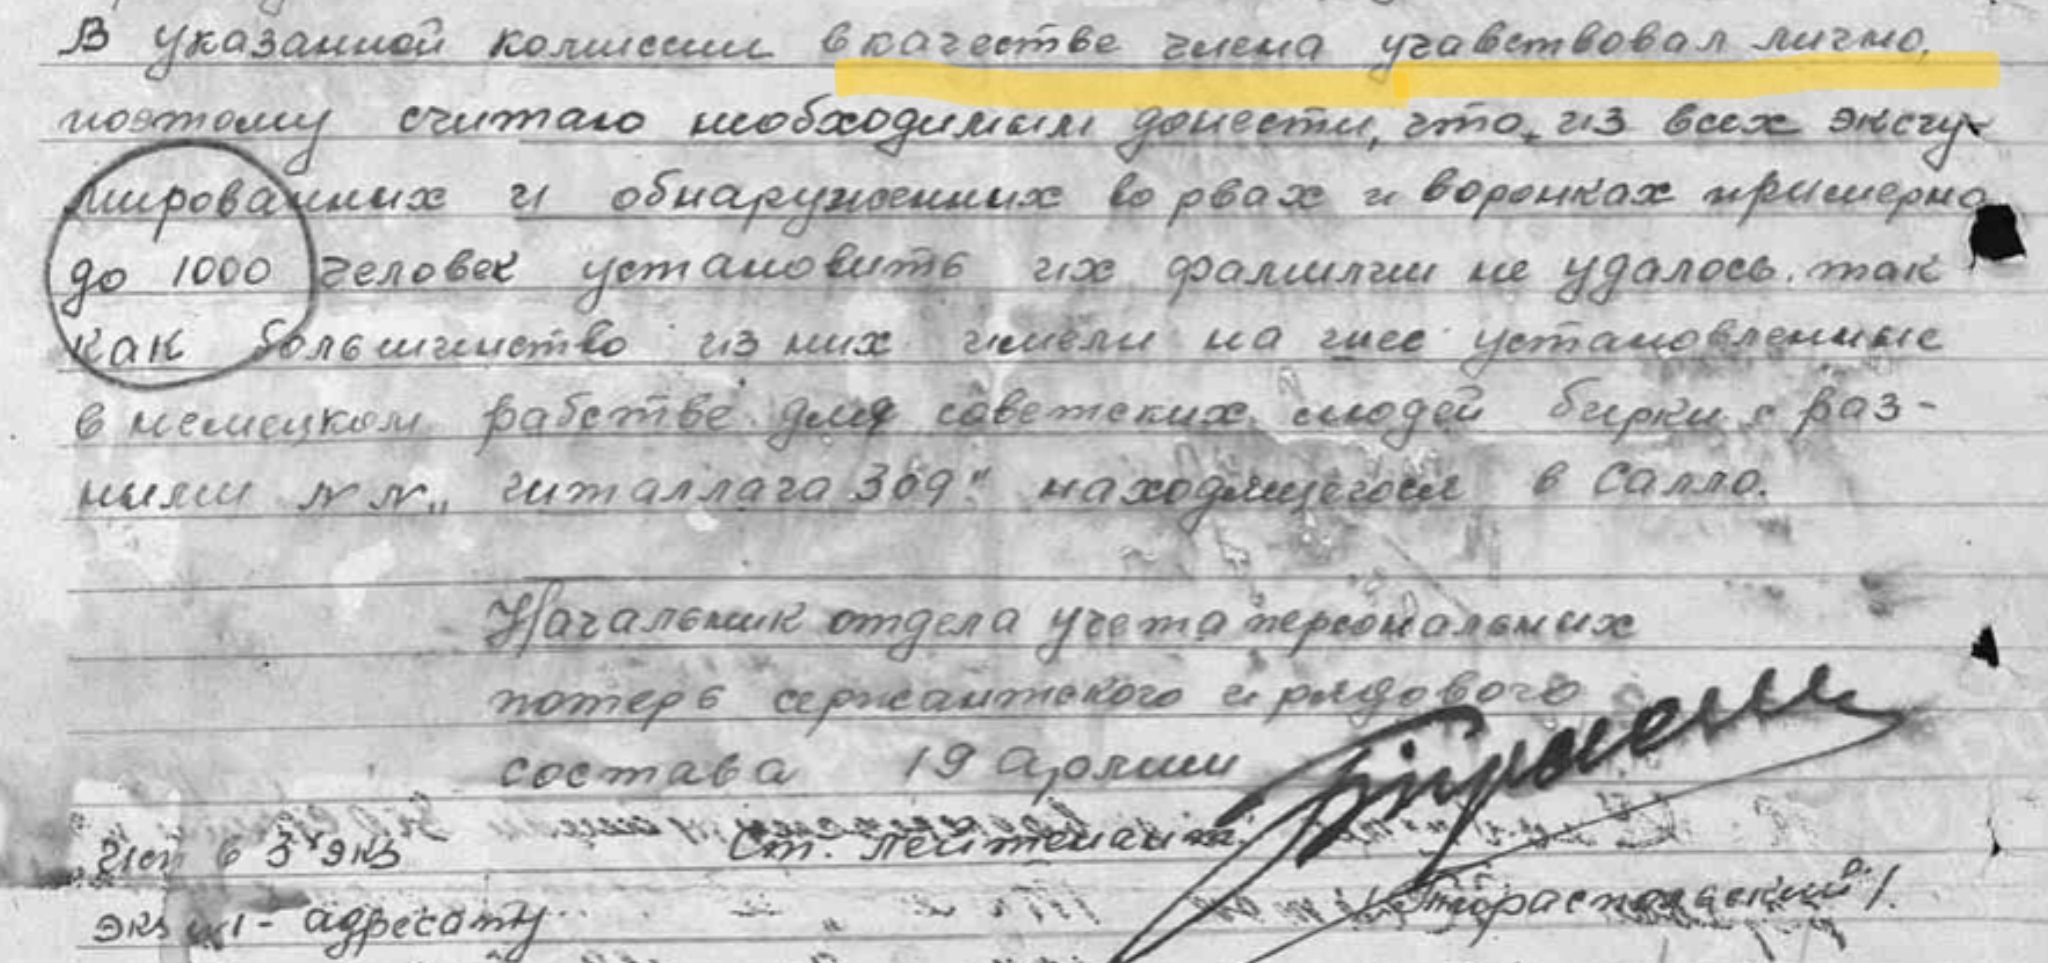 В указанной комиссии в качестве члена учавствовал лично,
поэтому считаю необходимым донести, что, из всех эксгу-
мированных и обнаруженных во рвах и воронках примерно
до 1000 человек установить их фамилии не удалось. так
как большинство из них имели на шее установленные
в немецком рабстве для советских людей бирки с раз-
ными №№ „ шталлага 309" находящегося в Салло.
Начальник отдела учета персональных
потерь сержантского и рядового
состава 19 Армии
Ст. лейтенант
исп в 3х экз
/Тираспольский/.
экз №1 - адресату